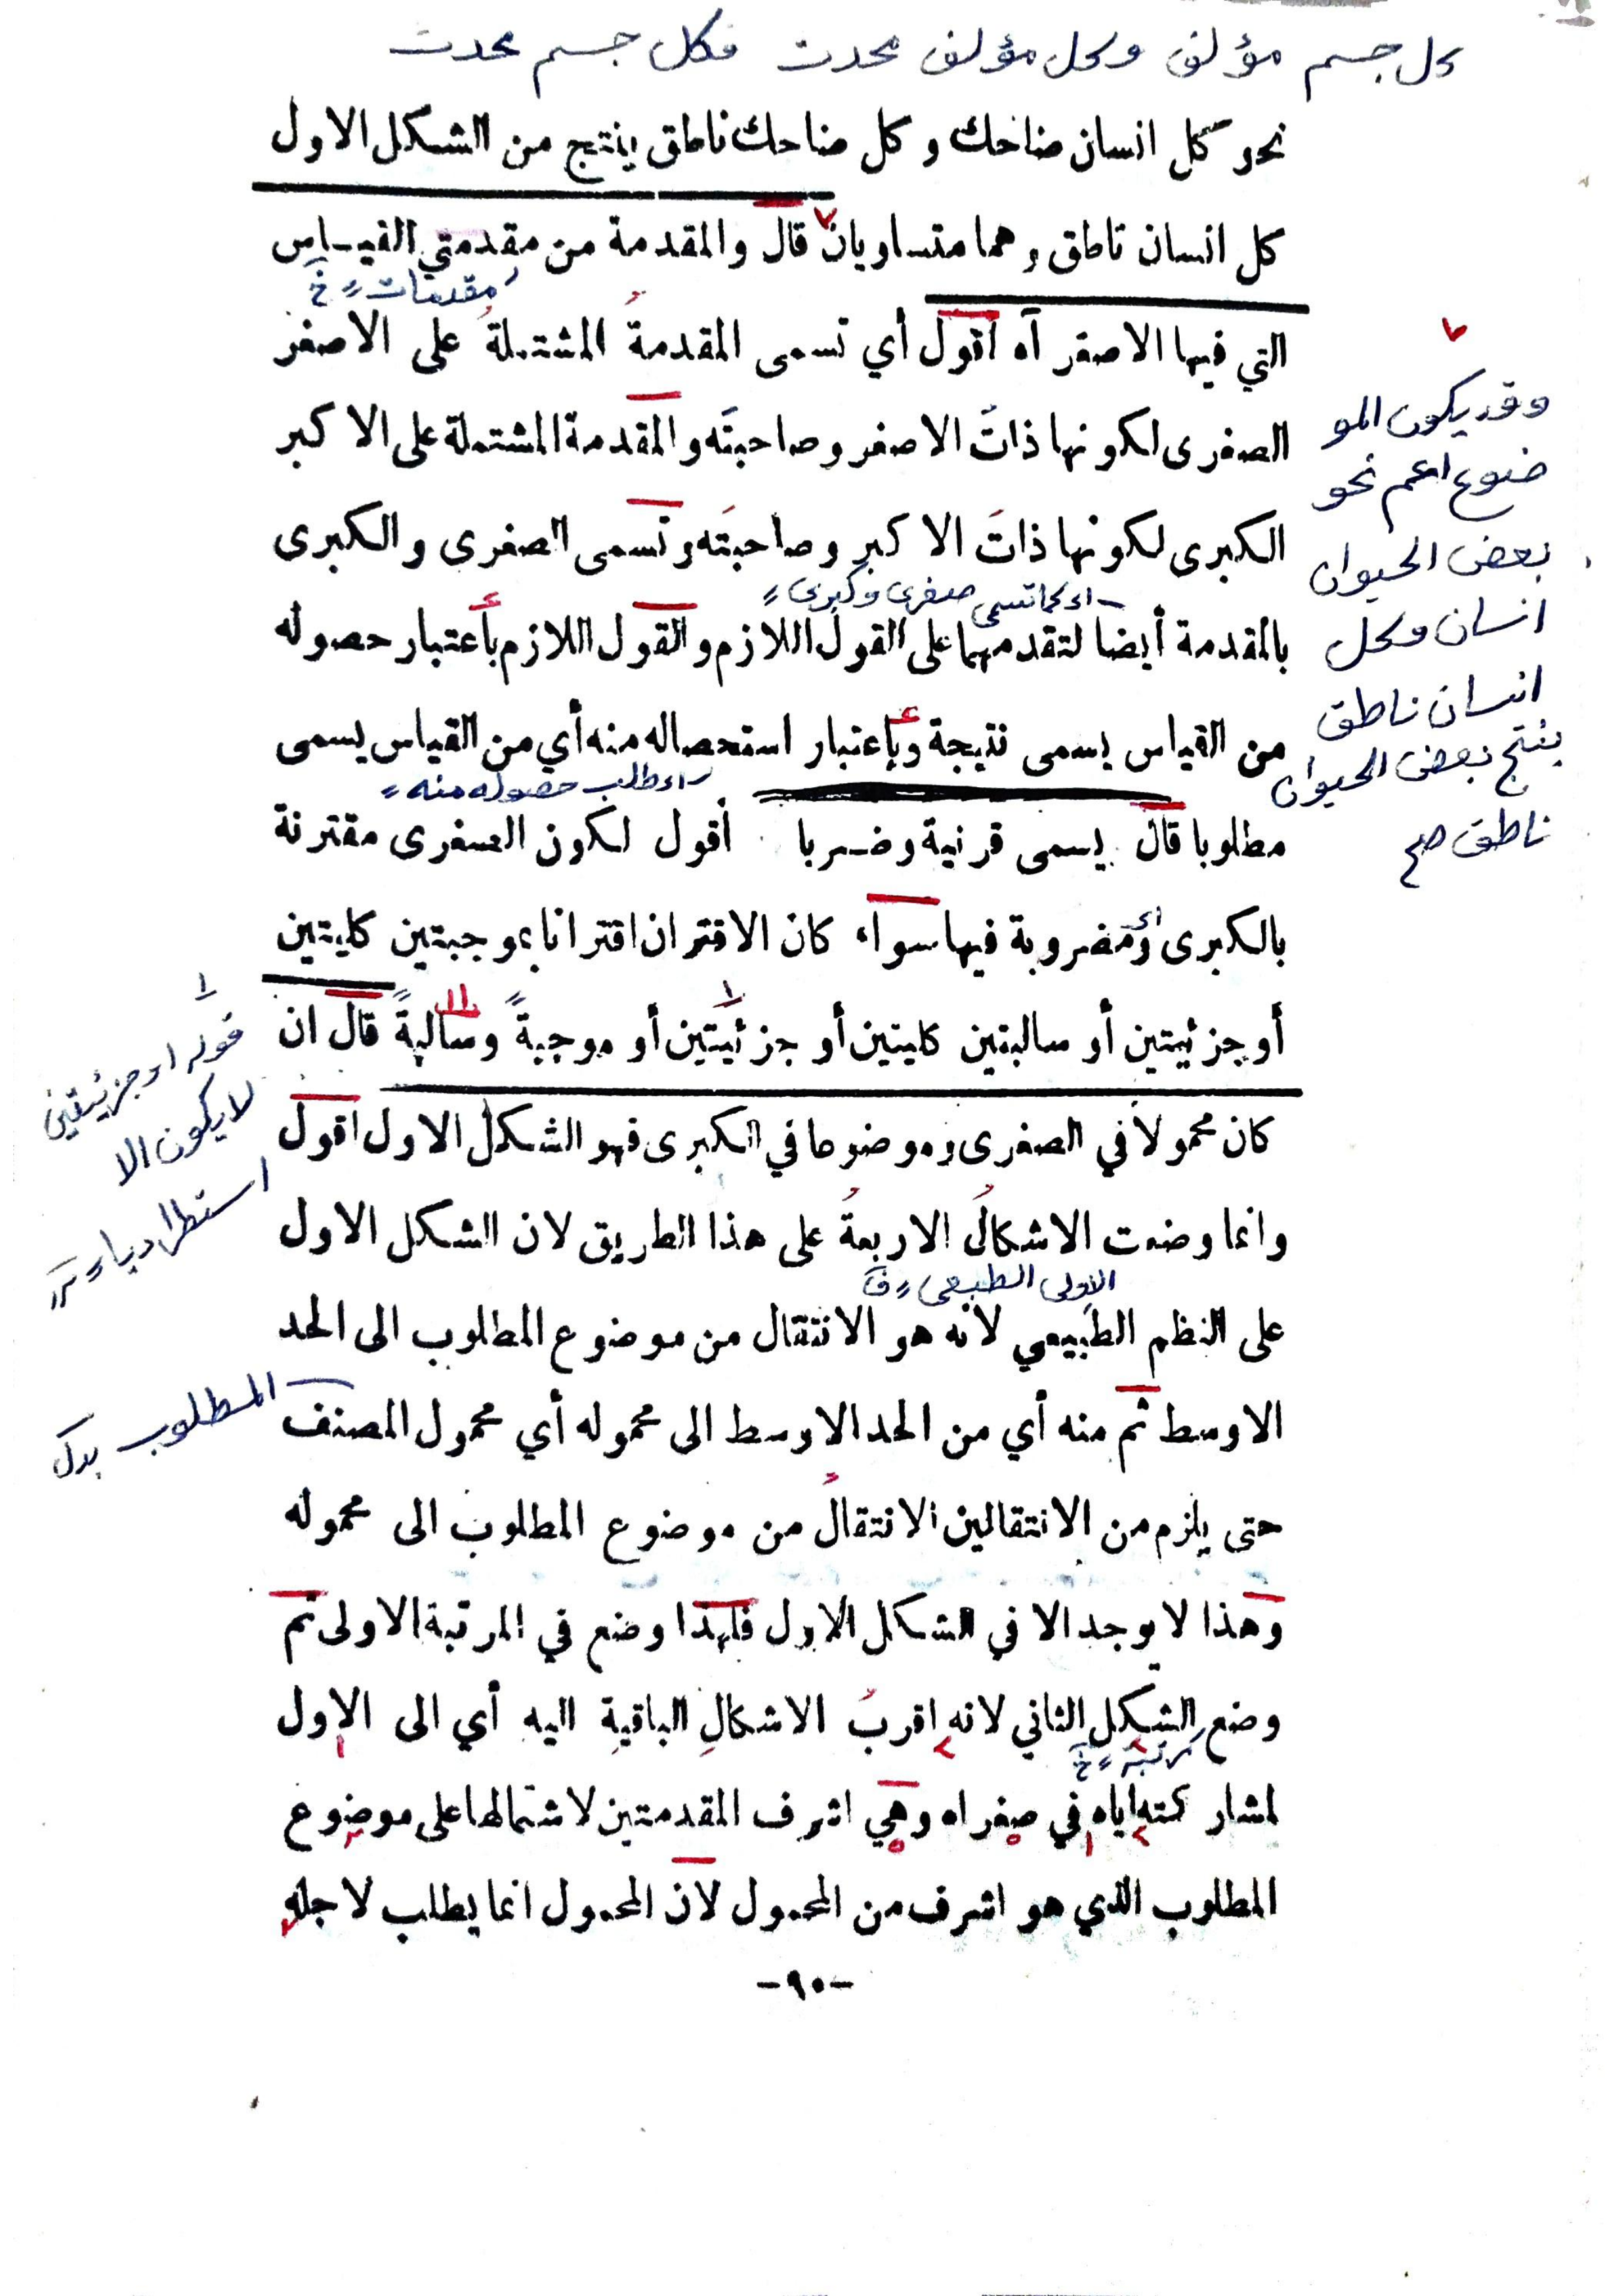 كل جسم مؤلف وكل مؤلف محدث فكل جسم محدث
نحو كل انسان ضاحك وكل ضاحك ناطق ينتج من الشكل الاول
كل انسان ناطق وهما متساويان قال والمقدمة من مقدمتي القياس
مقدمات خ
التي فيها الاصغر آه أقول أي تسمى المقدمةُ المشتملةُ على الاصغر
الصغرى لكونها ذاتَ الاصغر وصاحبتَه والمقدمة المشتملة على الاكبر
الكبرى لكونها ذاتَ الاكبر وصاحبتَه وتسمى الصغرى والكبرى
اى كما تسمى صغرى وكبرى
بالمقدمة أيضا لتقدمهما على القول اللازم والقول اللازم بأعتبار حصوله
من القياس يسمى نتيجة وبإعتبار استحصاله منه أي من القياس يسمى
اى طلب حصوله منه
مطلوبا قال يسمى قرنية وضربا أقول لكون الصغرى مقترنة
بالكبرى ومضروبة فيها سواء كان الاقتران اقترانا بموجبتين كليتين
أو جزئيتين أو سالبتين كليتين أو جزئيتين أو موجبةً وسالبةً قال ان
كان محمولاً في الصغرى وموضوعا في الكبرى فهو الشكل الاول اقول
وانما وضعت الاشكالُ الاربعةُ على هذا الطريق لان الشكل الاول
الاولى الطبعى
على النظم الطبيعي لانه هو الانتقال من موضوع المطلوب الى الحد
الاوسط ثم منه أي من الحد الاوسط الى محموله أي محمول المصنف
حتى يلزم من الانتقالين الانتقالُ من موضوع المطلوب الى محموله
وهذا لا يوجد الا في الشكل الاول فلهذا وضع في المرتبة الاولى ثم
وضع الشكل الثاني لانه اقربُ الاشكالِ الباقيةِ اليه أي الى الاول
لمشاركته اياه في صغراه وهي اشرف المقدمتين لاشتمالها على موضوع
المطلوب الذي هو اشرف من المحمول لان المحمول انما يطلب لاجله
-٩٠-
وقد يكون المو
ضوع اعم نحو
بعض الحيوان
انسان وكل
انسان ناطق
ينتج بعض الحيوان
ناطق صح
قوله او جزئيتين
لا يكون الا
استطراديا
المطلوب بدل